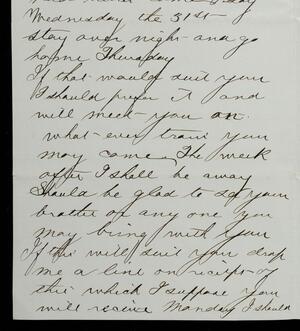 Wednesday the 31st
stay over night and go
home Thursday
If that would suit you
I should prefer it and
will meet you on
what-ever train you
may come. The week
after I shall be away
Should be glad to see your
brother or any one you
may bring with you
If this will suit you drop
me a line on receipt of
this which I suppose you
will receive Monday I should